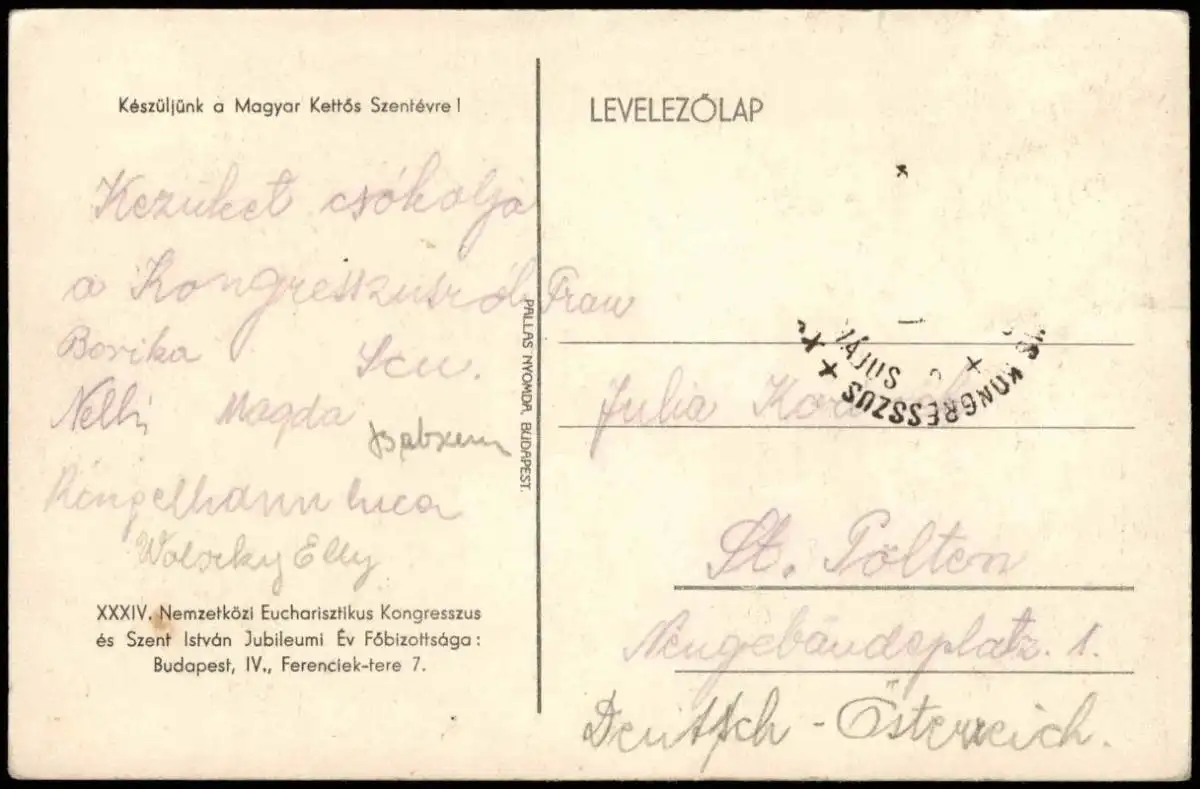 Készüljünk a Magyar Kettős Szentévre!
Kezüket csókolja
a Kongresszusról
Borika
Nelli Magda
Ringelhann Luca
Wolszky Elly
XXXIV. Nemzetközi Eucharisztikus Kongresszus
és Szent István Jubileumi Év Főbizottsága:
Budapest, IV., Ferenciek-tere 7.
PALLAS NYOMDA, BUDAPEST.
LEVELEZŐLAP
KONGRESSZUS
MÁJUS
Frau
Julia
St. Pölten
Neugebäudeplatz. 1.
Deutsch - Österreich.